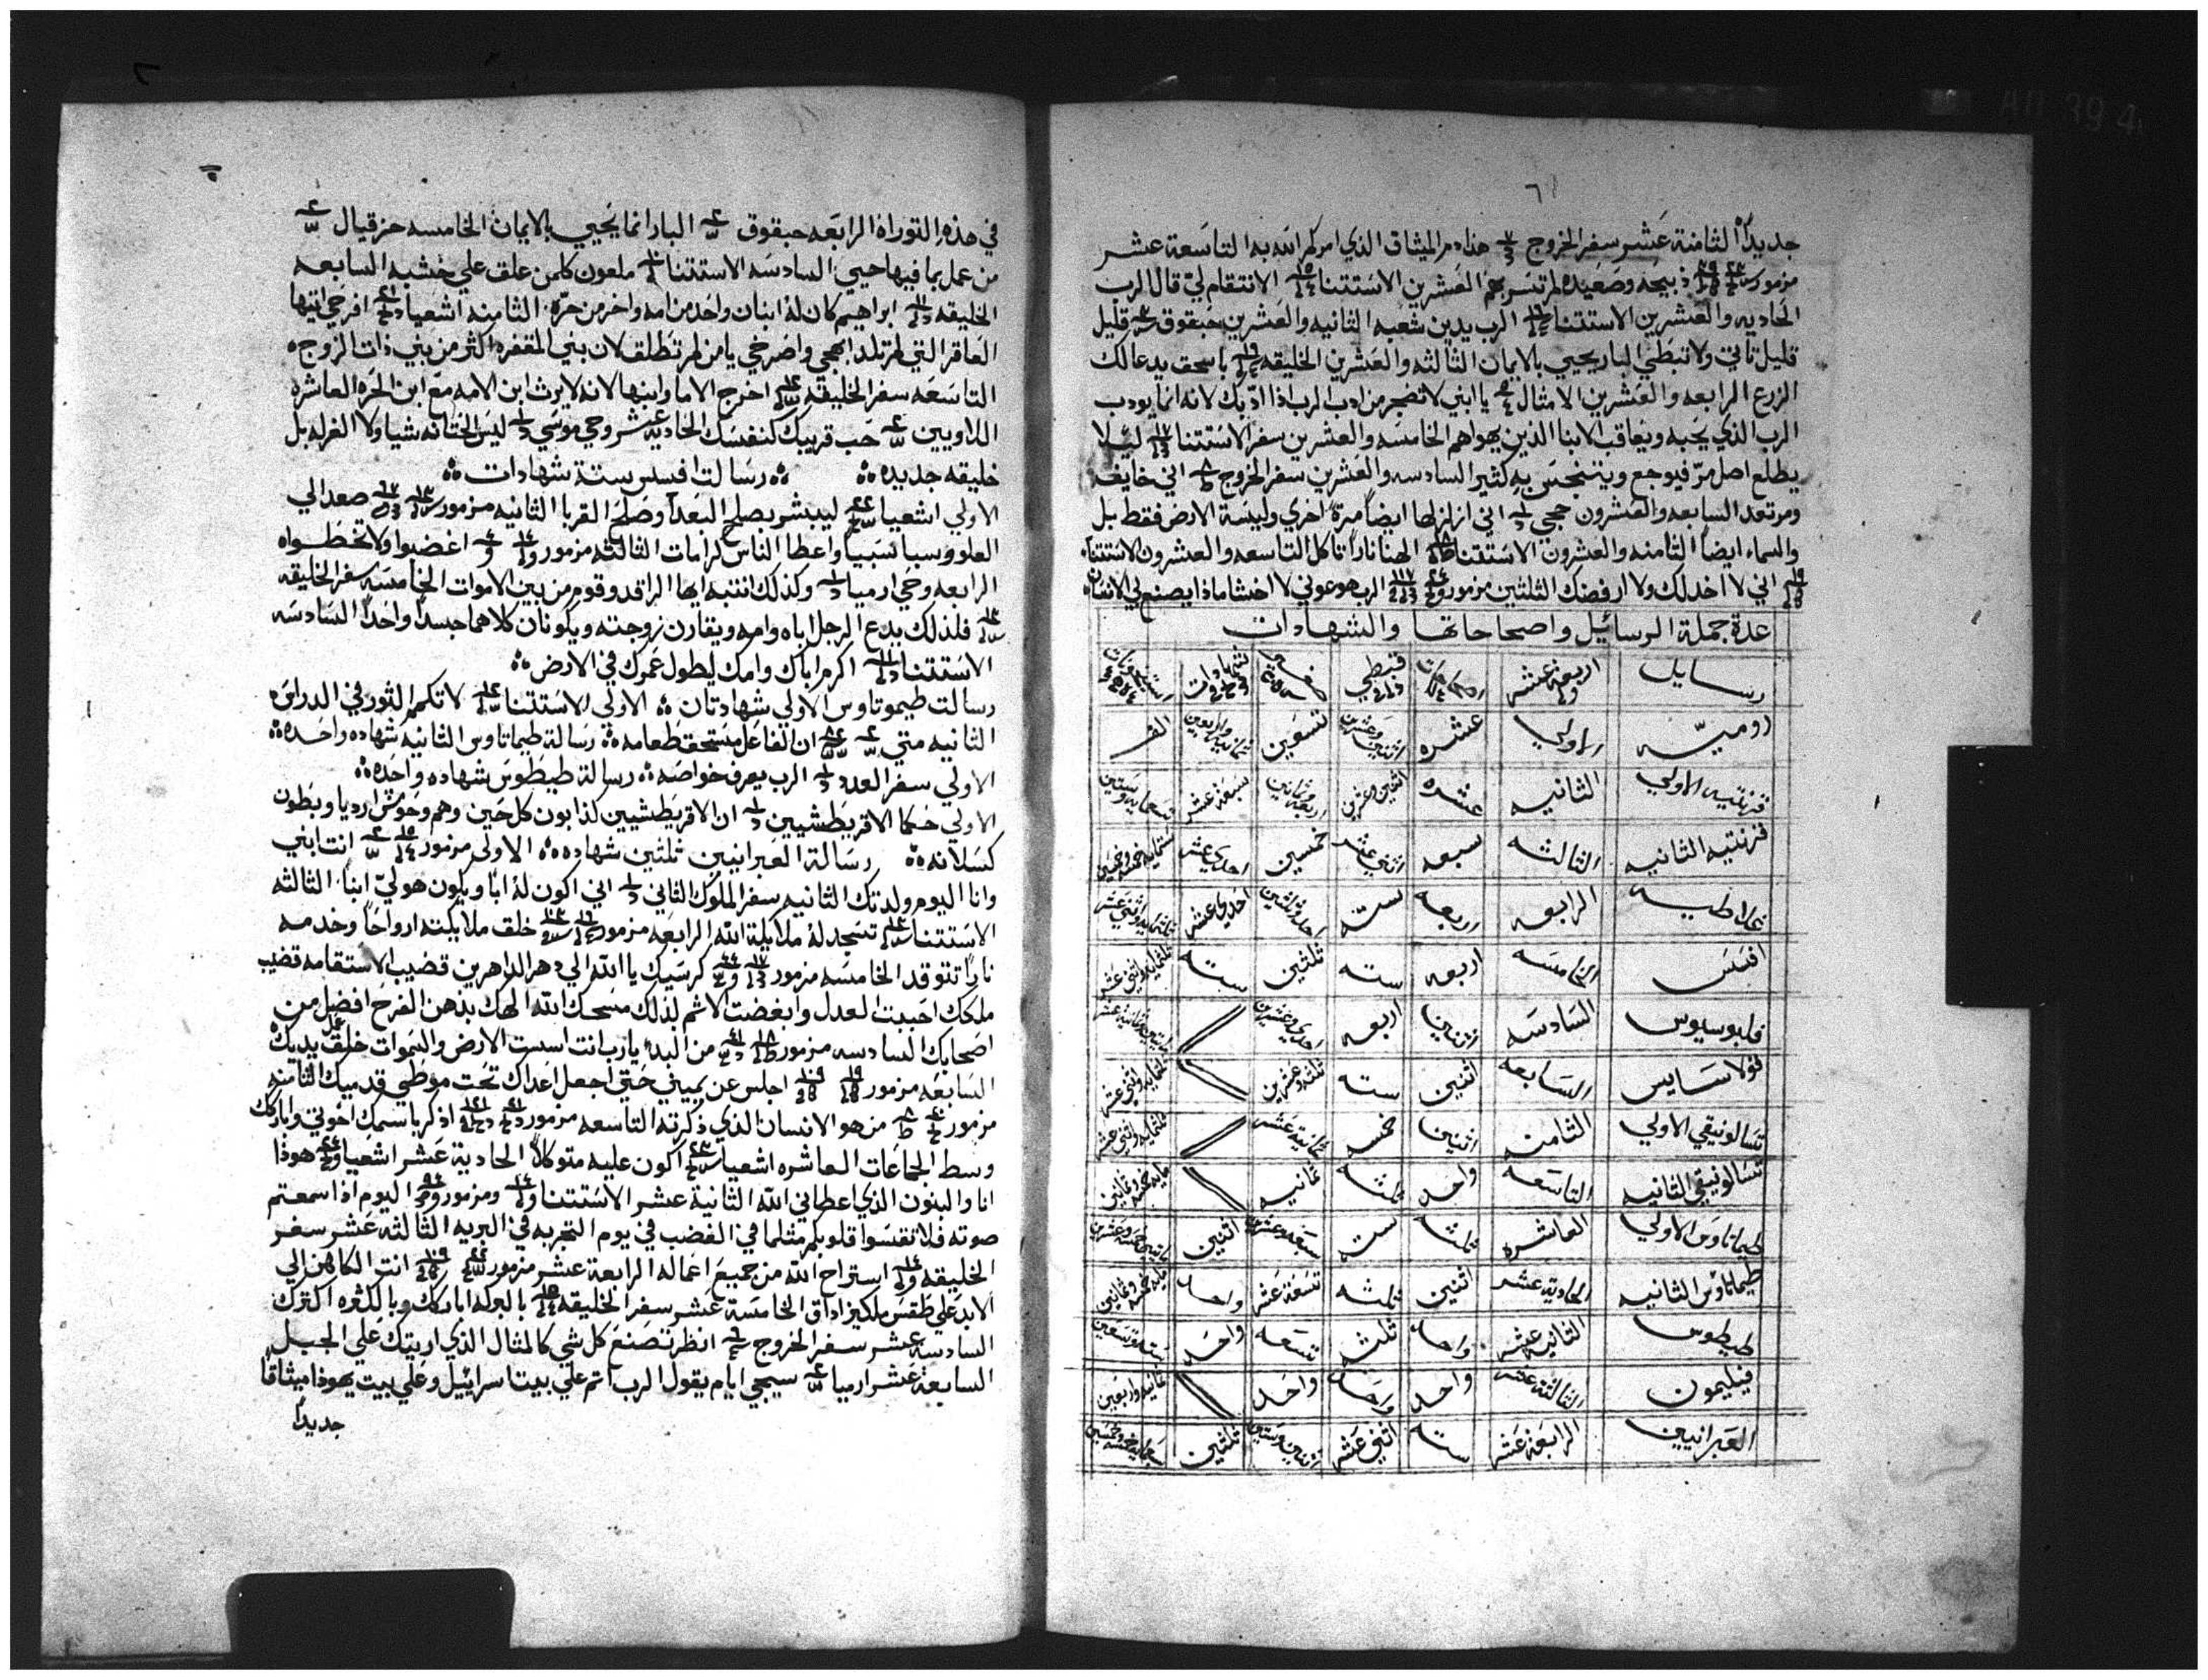 في هذه التوراة الرابعه حبقوق البار انما يحيي بالايمان الخامسه حزقيال
من عمل بما فيها حيي السادسه الاستتنا ملعون كلمن علق علي خشبه السابعه
الخليقه ابراهيم كان له ابنان واحد من امه واخر من حرّه الثامنه اشعيا افرحي ايتها
العاقر التي لم تلد ابهجي واصرخي يا من لم تطلق لان بني المقفره اكثر من بني ذات الزوج
التاسعه سفر الخليقه اخرج الاما وابنها لانه لا يرث ابن الامه مع ابن الحره العاشره
اللاويين حب قريبك كنفسك الحاديه عشر وحي موسي ليس الختانه شيا ولا الغرله بل
خليقه جديده رسالت افسس ستة شهادات
الاولي اشعيا ليبشر بصلح البعدا وصلح القربا الثانيه مزمور صعد الي
العلو وسبا سبياً واعطا الناس كرامات الثالثه مزمور اغضبوا ولا تخطوا
الرابعه وحي ارميا وكذلك انتبه ايها الراقد وقوم من بين الاموات الخامسه سفر الخليقه
فلذلك يدع الرجل اباه وامه ويقارن زوجته ويكونان كلاهما جسداً واحداً السادسه
الاستتنا اكرم اباك وامك ليطول عمرك في الارض
رسالت طيموتاوس الاولي شهادتان الاولي الاستتنا لا تكمم الثور في الدراس
الثانيه متي ان الفاعل مستحق طعامه رسالة طيماتاوس الثانيه شهاده واحده
الاولي سفر العدد الرب يعرف خواصه رسالة طيطوس شهاده واحده
الاولي حكما الاقريطشيين ان الاقريطشيين كذابون كل حين وهم وحوش ارديا وبطون
كسلانه رسالة العبرانيين ثلثين شهاده الاولى مزمور انت ابني
وانا اليوم ولدتك الثانيه سفر الملوك الثاني اني اكون له اباً ويكون هو ليّ ابناً الثالثه
الاستتنا تسجد له ملايكة الله الرابعه مزمور خلق ملايكته ارواحاً وخدمه
ناراً تتوقد الخامسه مزمور كرسيك يا الله الي دهر الداهرين قضيب الاستقامه قضيب
ملكك احببت العدل وابغضت الاثم لذلك مسحك الله الهك بدهن الفرح افضل من
اصحابك السادسه مزمور من البدء يا رب انت اسست الارض والسموات خلق عمل يديك
السابعه مزمور اجلس عن يميني حتي اجعل اعداك تحت موطي قدميك الثامنه
مزمور من هو الانسان الذي ذكرته التاسعه مزمور اذكر باسمك اخوتي واباركك
وسط الجماعات العاشره اشعيا اكون عليه متوكلاً الحادية عشر اشعيا هوذا
انا والبنون الذي اعطاني الله الثانية عشر الاستتنا ومزمور اليوم اذا سمعتم
صوته فلا تقسوا قلوبكم مثلما في الغضب في يوم التجربه في البريه الثالثه عشر سفر
الخليقه استراح الله من جميع اعماله الرابعة عشر مزمور انت الكاهن الي
الابد علي طقس ملكيزاداق الخامسة عشر سفر الخليقه بالبركه اباركك وبالكثره اكثرك
السادسه عشر سفر الخروج انظر تصنع كل شي كالمثال الذي اريتك علي الجبل
السابعة عشر ارميا سيجي ايام يقول الرب اتم علي بيت اسرائيل وعلي بيت يهوذا ميثاقاً
جديداً
٦
جديداً الثامنة عشر سفر الخروج هذا دم الميثاق الذي امركم الله به التاسعة عشر
مزمور ذبيحه وصعيده لم تسر بهم العشرين الاستتنا الانتقام ليّ قال الرب
الحاديه والعشرين الاستتنا الرب يدين شعبه الثانيه والعشرين حبقوق قليل
قليل تاتي ولا تبطي البار يحيي بالايمان الثالثه والعشرين الخليقه باسحق يدعا لك
الزرع الرابعه والعشرين الامثال يا ابني لا تضجر من ادب الرب اذا ادّبك لانه انما يودب
الرب الذي يحبه ويعاقب الابنا الذين يهواهم الخامسه والعشرين سفر الاستتنا ليلا
يطلع اصل مرّ فيوجع ويتنجس به كثير السادسه والعشرين سفر الخروج اني خايف
ومرتعد السابعه والعشرون حجي اني ازلزلها ايضاً مرة اخري وليسة الارض فقط بل
والسماء ايضاً الثامنه والعشرون الاستتنا الهنا ناراً تاكل التاسعه والعشرون الاستتنا
اني لا اخذلك ولا ارفضك الثلثين مزمور الرب هو عوني لا اخشا ماذا يصنع بي الانسان
عدة جملة الرسائيل واصحاحاتها والشهادات
رسايل اربعة عشر قبطي شهادات
روميّه الاولي عشره اثنين وعشرين تسعين ثمانيه واربعين الف
قرنتيه الاولي الثانيه عشره اثنين وعشرين اربعة وثمانين سبعة عشر تسعمايه وستين
قرنتيه الثانيه الثالثه سبعه اثني عشر خمسين احدي عشر ستمايه خمسه وخمسين
غلاطيه الرابعه اربعه سته احد وثلثين احدي عشر ثلثمايه واثني عشر
افسس الخامسه اربعه سته ثلثين سته ثلثمايه واثني عشر
فلبوسيوس السادسه اثنين اربعه احدي وعشرين مايتين وثمانية عشر
قولاسايس السابعه اثنين سته ثلثه وعشرين ثلثمايه واثني عشر
تسالونيقي الاولي الثامن اثنين خمسه ثمانية عشر ثلثمايه واثني عشر
تسالونيقي الثانيه التاسعه واحد ثلثه ثمانيه مايه خمسه وثمانين
طيماتاوس الاولي العاشره ثلثه سته سبعه وعشرين اثنين مايتين خمسه وعشرين
طيماتاوس الثانيه الحادية عشر اثنين ثلثه تسعة عشر واحد مايه خمسه وثمانين
طيطوس الثانيه عشر واحد ثلثه تسعه واحد سته وتسعين
فيليمون الثالثة عشر واحد واحد واحد ثمانيه واربعين
العبرانيين الرابعة عشر سته اثني عشر اثنين وستين ثلثين سبعمايه خمسه وخمسين